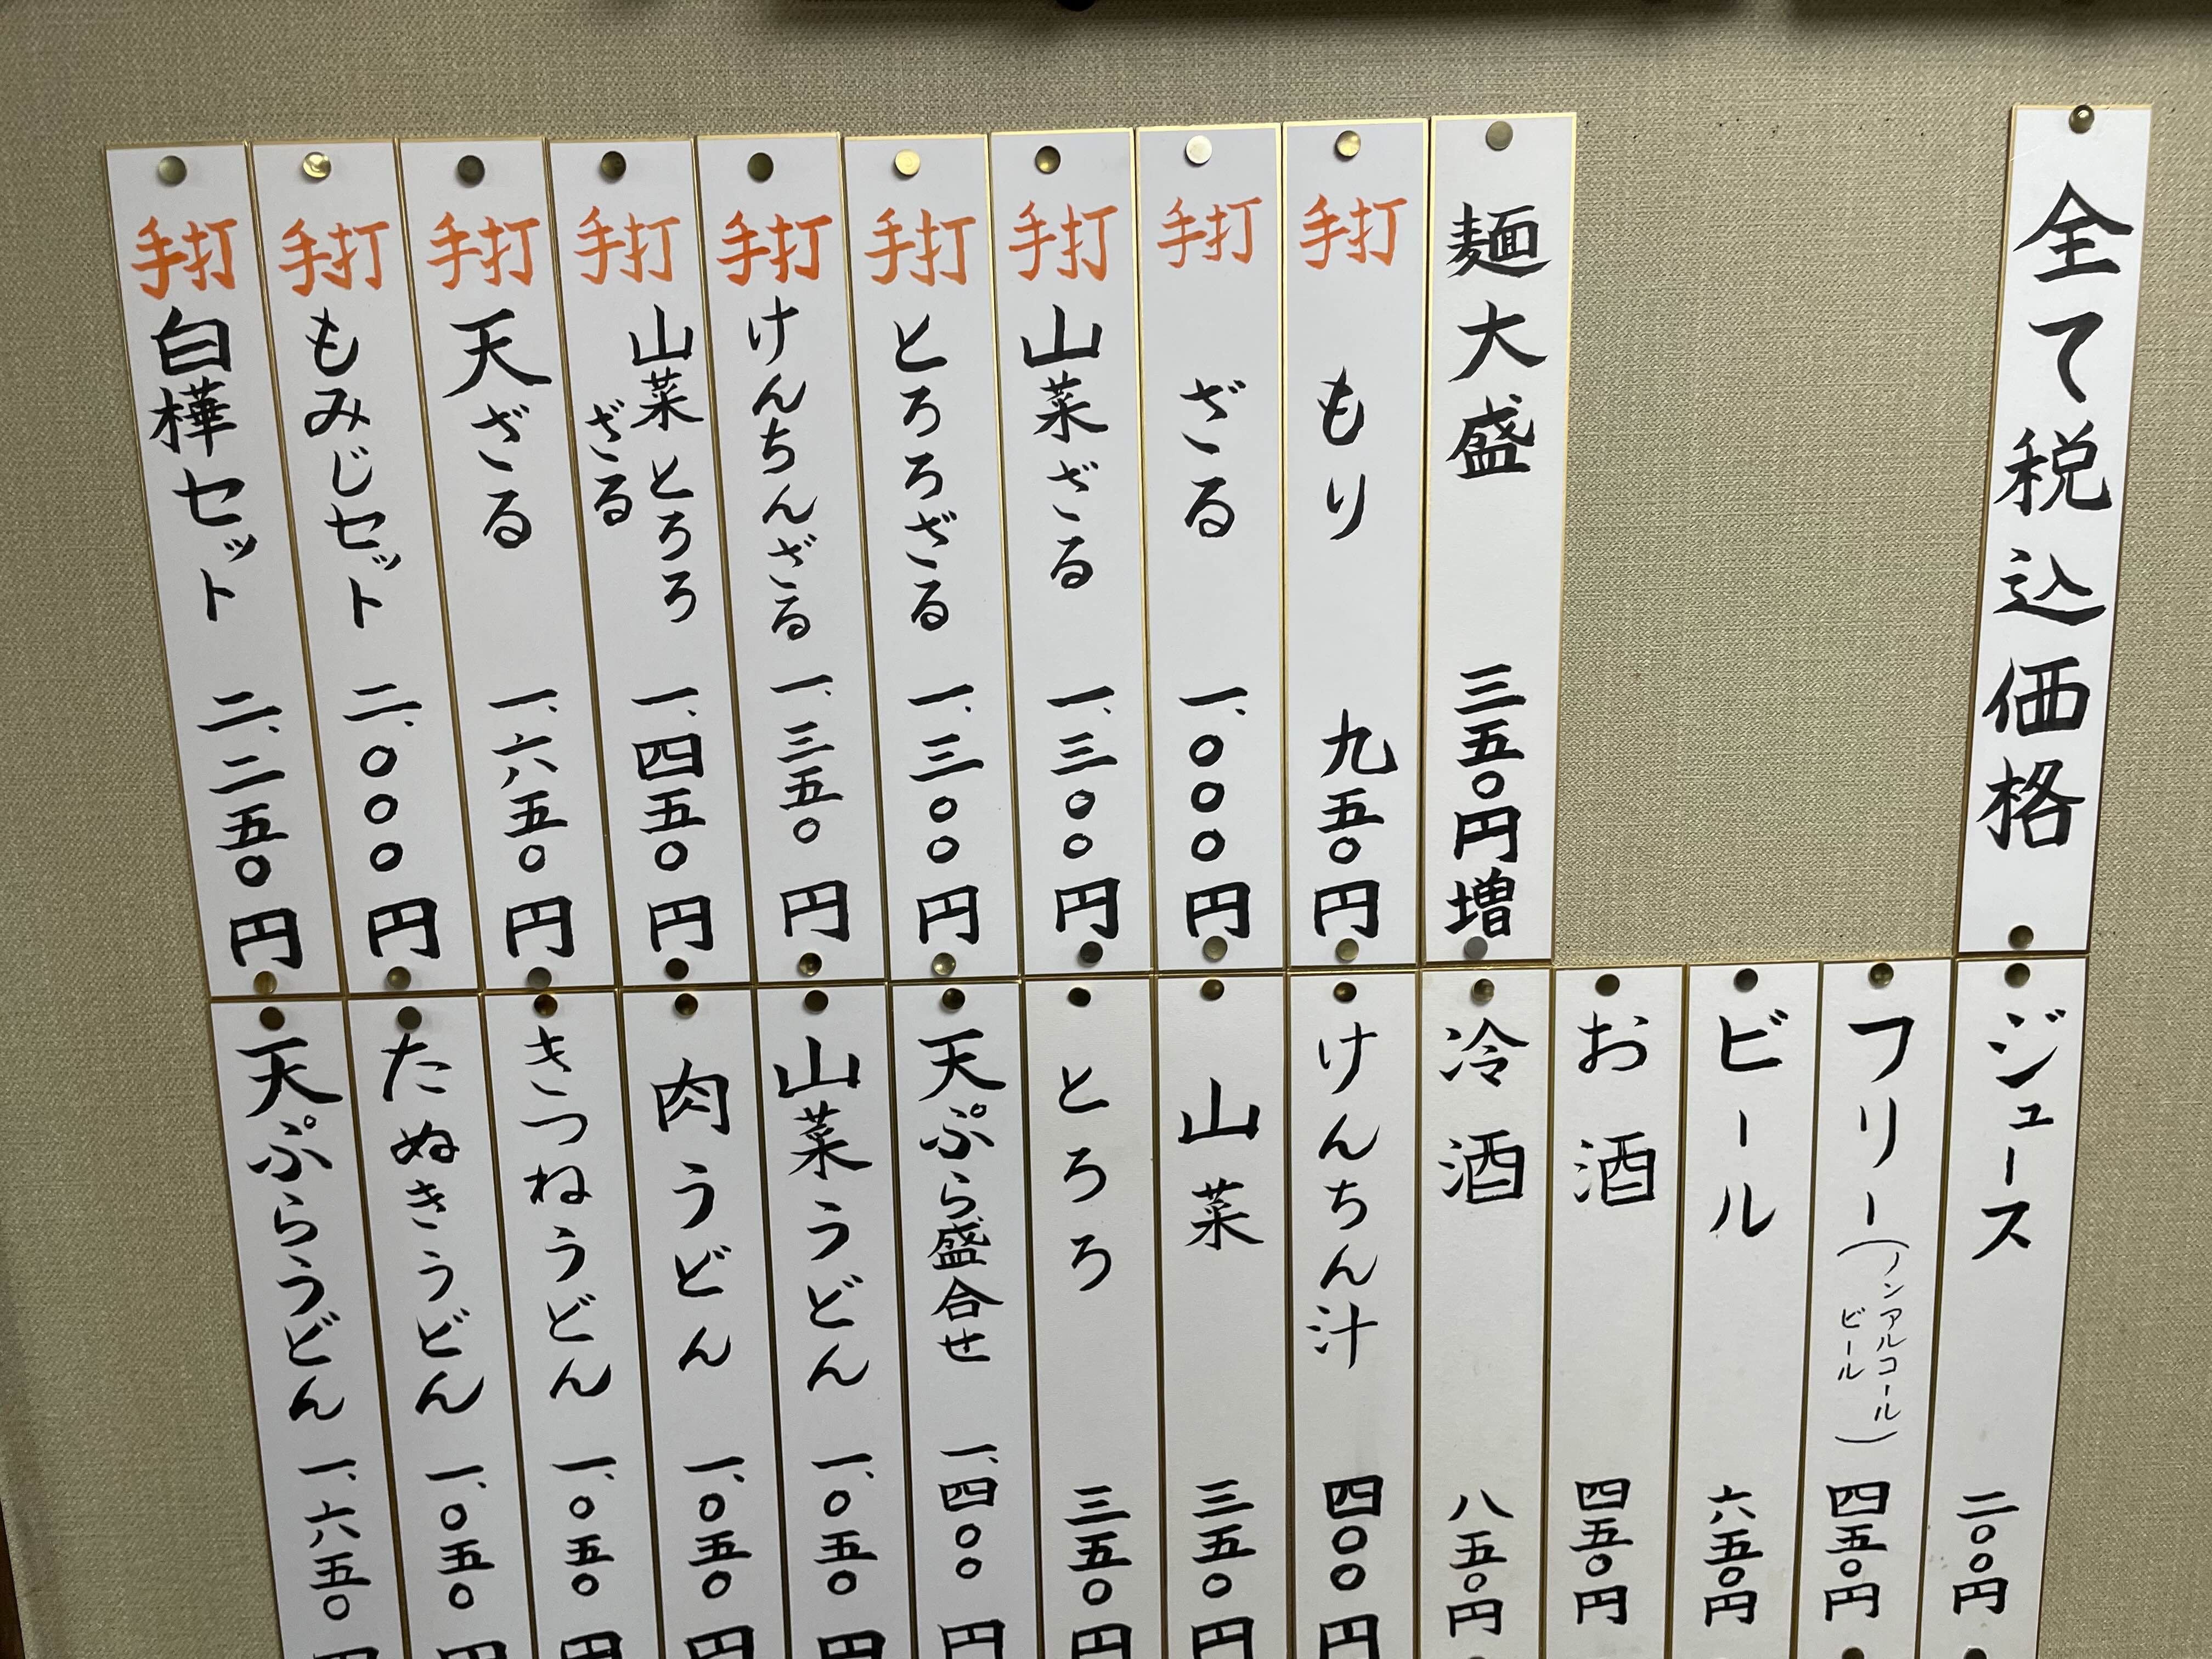 全て税込価格
麺大盛 三五〇円増
手打 もり 九五〇円
手打 ざる 一、〇〇〇円
手打 山菜ざる 一、三〇〇円
手打 とろろざる 一、三〇〇円
手打 けんちんざる 一、三五〇円
手打 山菜とろろ
ざる 一、四五〇円
手打 天ざる 一、六五〇円
手打 もみじセット 二、〇〇〇円
手打 白樺セット 二、二五〇円
ジュース 二〇〇円
フリー(ノンアルコール
ビール) 四五〇円
ビール 六五〇円
お酒 四五〇円
冷酒 八五〇円
けんちん汁 四〇〇円
山菜 三五〇円
とろろ 三五〇円
天ぷら盛合せ 一、四〇〇円
山菜うどん 一、〇五〇円
肉うどん 一、〇五〇円
きつねうどん 一、〇五〇円
たぬきうどん 一、〇五〇円
天ぷらうどん 一、六五〇円